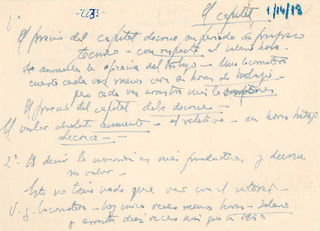 1º
El capital
1/14/19
El precio del capital decrece en periodo de progreso
técnico - con respecto al
Se aumenta la eficacia del trabajo - Una locomotora
cuesta cada vez menos cara en horas de trabajo -
pero cada vez arrastra más
El precio del capital debe decrecer -
El valor absoluto aumenta - el relativo - en horas trabajo
decrece -
2º. Es decir la inversión es más productiva y decrece
su valor -
Esto no tiene nada que ver con el interés -
V. g. locomotora - hoy cinco veces menos horas -
y arrastra diez veces más que la